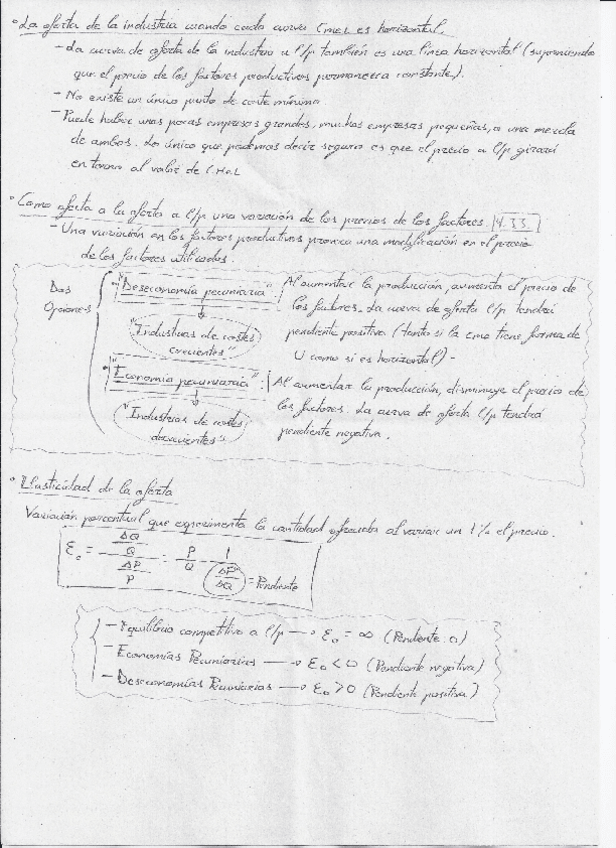 ° La oferta de la industria cuando cada curva CMeL es horizontal.
- La curva de oferta de la industria a l/p también es una línea horizontal (suponiendo
que el precio de los factores productivos permanezca constante).
- No existe un único punto de coste mínimo
- Puede haber unas pocas empresas grandes, muchas empresas pequeñas, o una mezcla
de ambos. Lo único que podemos decir seguro es que el precio a l/p girará
en torno al valor de CMeL
° Como afecta a la oferta a l/p una variación de los precios de los factores 4.33
- Una variación en los factores productivos provoca una modificación en el precio
de los factores utilizados.
Dos
Opciones
"Deseconomía pecuniaria": Al aumentar la producción, aumenta el precio de
los factores. La curva de oferta l/p tendrá
"Industrias de costes
crecientes"
pendiente positiva (tanto si la cme tiene forma de
U como si es horizontal) -
"Economía pecuniaria": Al aumentar la producción, disminuye el precio de
los factores. La curva de oferta l/p tendrá
"Industrias de costes
decrecientes"
pendiente negativa.
° Elasticidad de la oferta
Variación porcentual que experimenta la cantidad ofrecida al variar un 1% el precio.
Ɛo = (ΔQ/Q)/(ΔP/P) = P/Q · 1/(ΔP/ΔQ) = Pendiente
- Equilibrio competitivo a l/p → Ɛo = ∞ (Pendiente 0)
- Economías Pecuniarias → Ɛo < 0 (Pendiente negativa)
- Deseconomías Pecuniarias → Ɛo > 0 (Pendiente positiva)